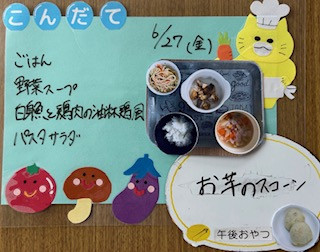 こんだて
6/27(金)
ごはん
野菜スープ
白身魚と鶏肉の油淋鶏風
パスタサラダ
お芋のスコーン
午後おやつ